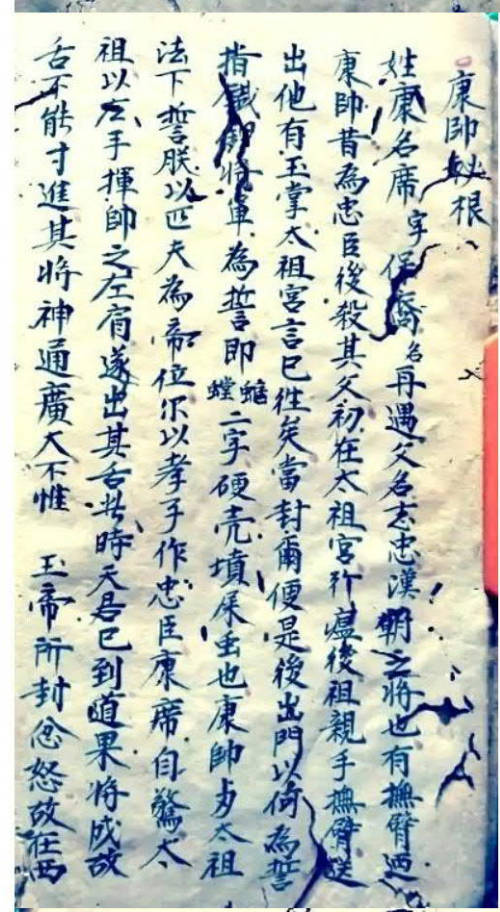 康帥妙根
姓康名席字保裔名再遇父名志忠漢朝之將也有撫臂迺
康帥昔為忠臣後殺其父初在太祖宮行瘟後祖親手撫臂送
出他有玉掌太祖宮言巳徃矣當封爾便是後出門以倚為誓
指鐵鉀將軍為誓即蟾螳二字硬壳墳屎虫也康帥步太祖
法下誓朕以匹夫為帝位尔以孝子作忠臣康席自驚太
祖以左手揮帥之左肩遂出其舌此時天君巳到道果將成故
舌不能寸進其將神通廣大不惟 玉帝所封忿怒故在西